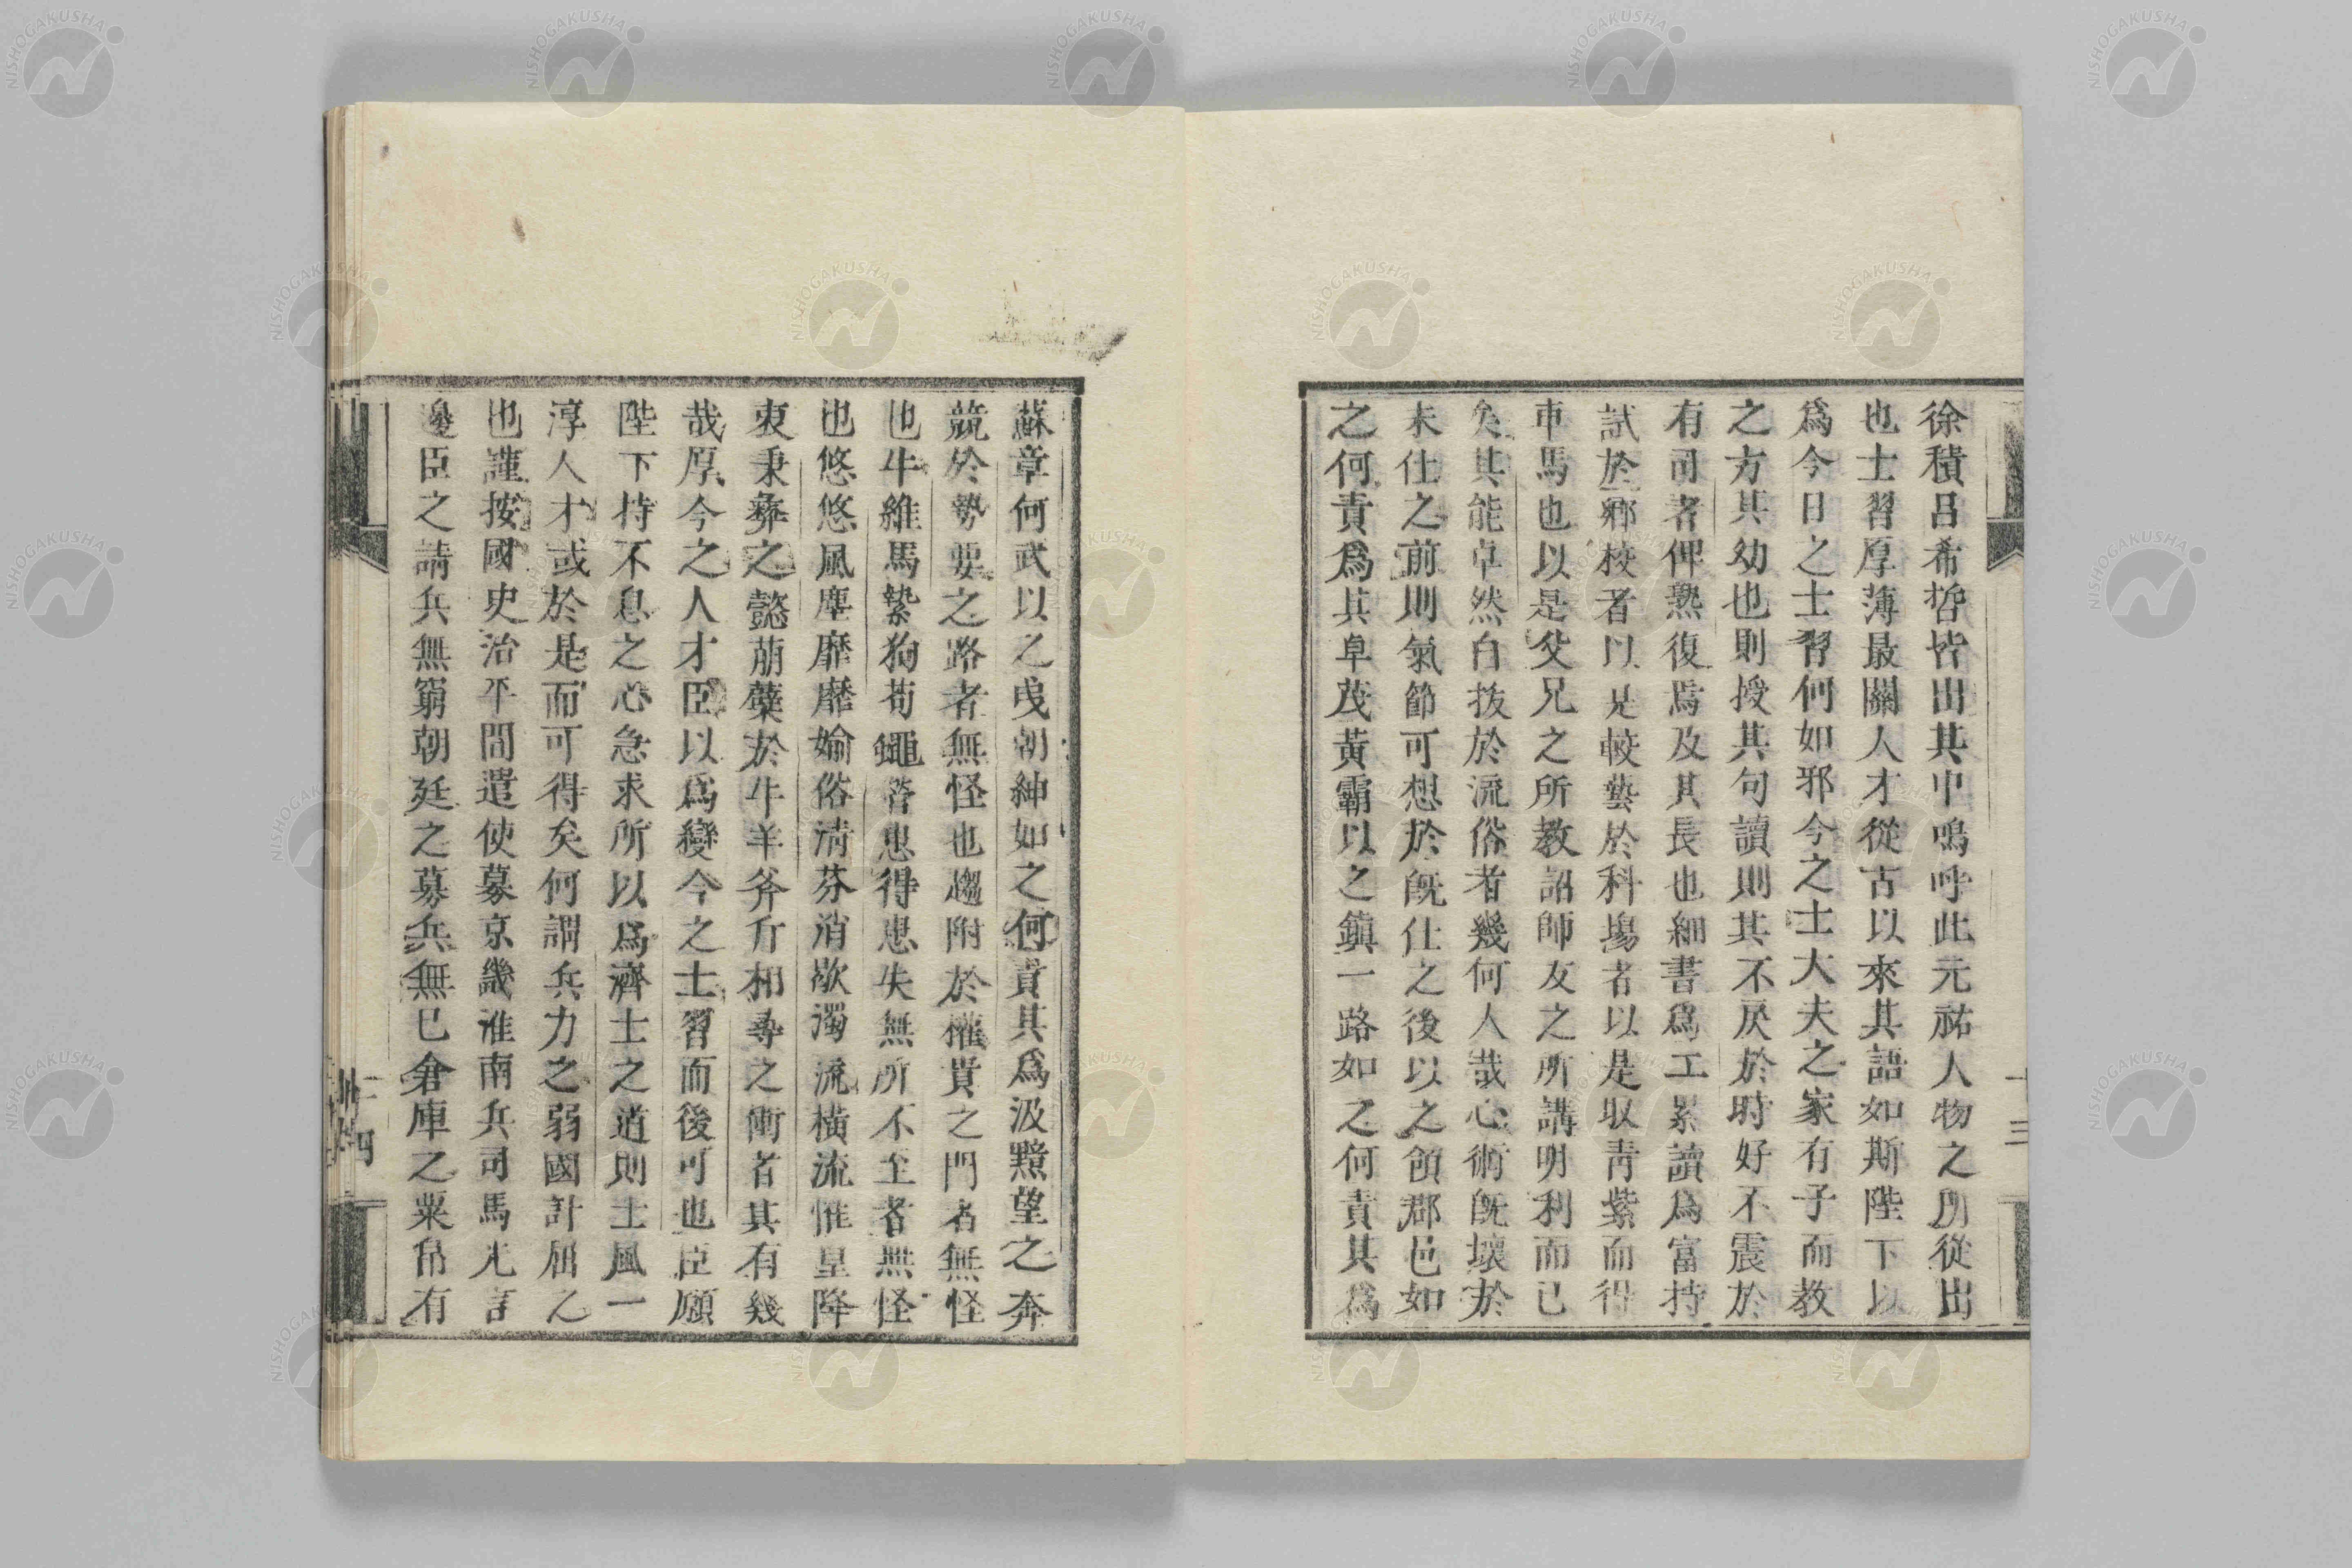 徐積呂希哲皆出其中嗚呼此元祐人物之所從出
也士習厚薄最關人才從古以來其語如斯陛下以
爲今日之士習何如邪今之士大夫之家有子而教
之方其幼也則授其句讀則其不戾於時好不震於
有司者俾熟復焉及其長也細書爲工累讀爲富持
試於鄉校者以是較藝於科場者以是取青紫而得
車馬也以是父兄之所教詔師友之所講明利而已
矣其能卓然自拔於流俗者幾何人哉心術既壞於
未仕之前則氣節可想於既仕之後以之領郡邑如
之何責爲其卓茂黃霸以之鎮一路如之何責其爲
蘇章何武以之曳朝紳如之何責其爲汲黯望之奔
競於勢要之路者無怪也趨附於權貴之門者無怪
也牛維馬縶狗苟蠅營患得患失無所不至者無怪
也悠悠風塵靡靡媮俗清芬消歇濁流橫流惟皇降
衷秉彝之懿萌蘗於牛羊斧斤相尋之衝者其有幾
哉厚今之人才臣以爲變今之士習而後可也臣願
陛下持不息之心急求所以爲濟士之道則士風一
淳人才或於是而可得矣何謂兵力之弱國計屈之
也謹按國史治平間遣使募京畿淮南兵司馬光言
邊臣之請兵無窮朝廷之募兵無已倉庫之粟帛有
十三
十四
NISHOGAKUSHA